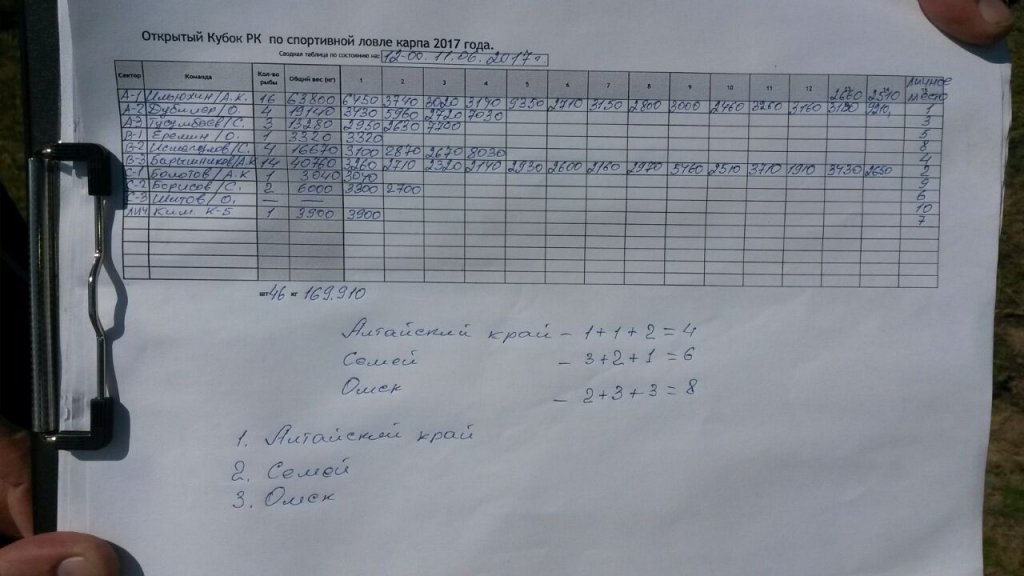 Открытый Кубок РК по спортивной ловле карпа 2017 года.
Сводная таблица по состоянию на: 12-00. 11.06.2017г.
Сектор Команда Кол-во рыбы Общий вес (кг) 1 2 3 4 5 6 7 8 9 10 11 12 личное место
А-1 Ильюхин/А.К. 16 63800 6450 3740 3020 3140 9350 2910 3150 2800 3000 2460 3260 3160 1
А-2 /О. 4 19140 3430 5960 2720 7030 3
А-3 /С. 3 13280 2950 2630 7700 5
В-1 Еремин/О. 1 3320 3320 8
В-2 /С. 4 16670 3100 2870 2670 8030 4
В-3 Барышников/А.К 14 40760 3260 2710 2320 2140 2930 2600 2160 2920 5460 2510 3710 1910 3430 2650 2
С-1 Болотов/А.К 1 3040 3040 9
С-2 Борисов/С. 2 6000 3300 2700 6
С-3 Шитов/О. — — 10
ЛИЧ Ким. К-Б 1 3900 3900 7
шт 46 кг 169.910
Алтайский край – 1+1+2=4
Семей – 3+2+1=6
Омск – 2+3+3=8
1. Алтайский край
2. Семей
3. Омск